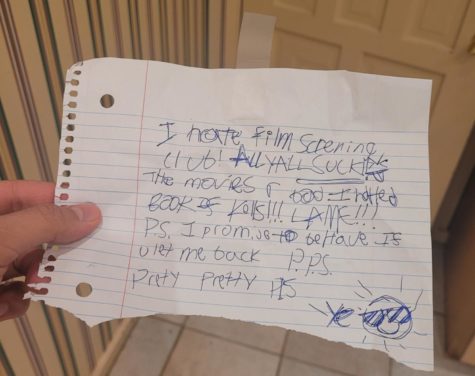 I hate Film Screening
Club! ALL YALL SUCK
The movies r bad I hated
BOOK OF Kells!!! LAME!!!
P.S. I promise to behave is
u let me back P.P.S.
Pretty pretty Pls
Ye